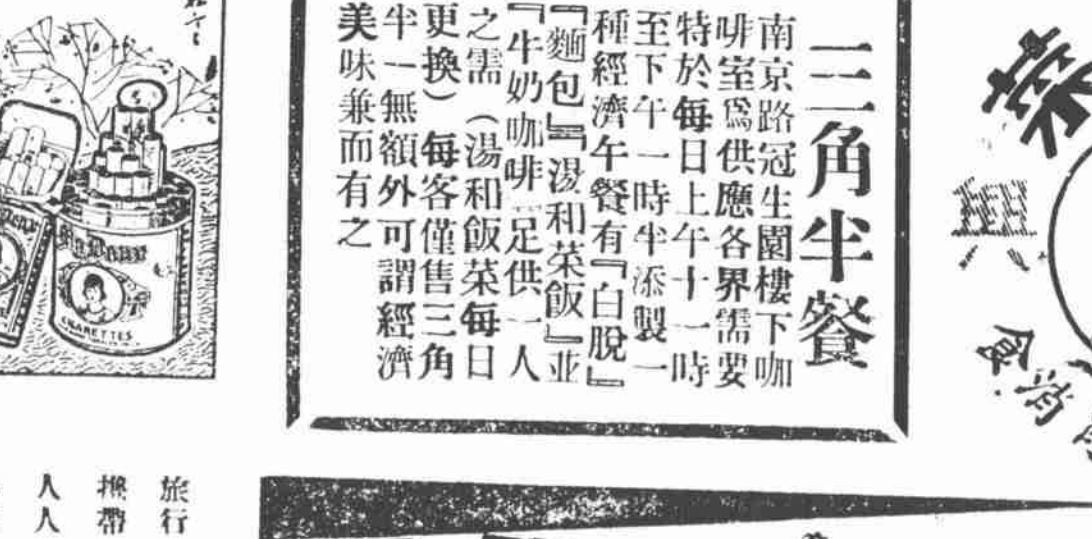 三角半餐
南京路冠生園樓下咖
啡室爲供應各界需要
特於每日上午十一時
至下午一時半添製一
種經濟午餐有『白脫』
『麵包』『湯和菜飯』並
『牛奶咖啡』足供一人
之需（湯和飯菜每日
更換）每客僅售三角
半一無額外可謂經濟
美味兼而有之
CIGARETTES
旅行
攜帶
人人